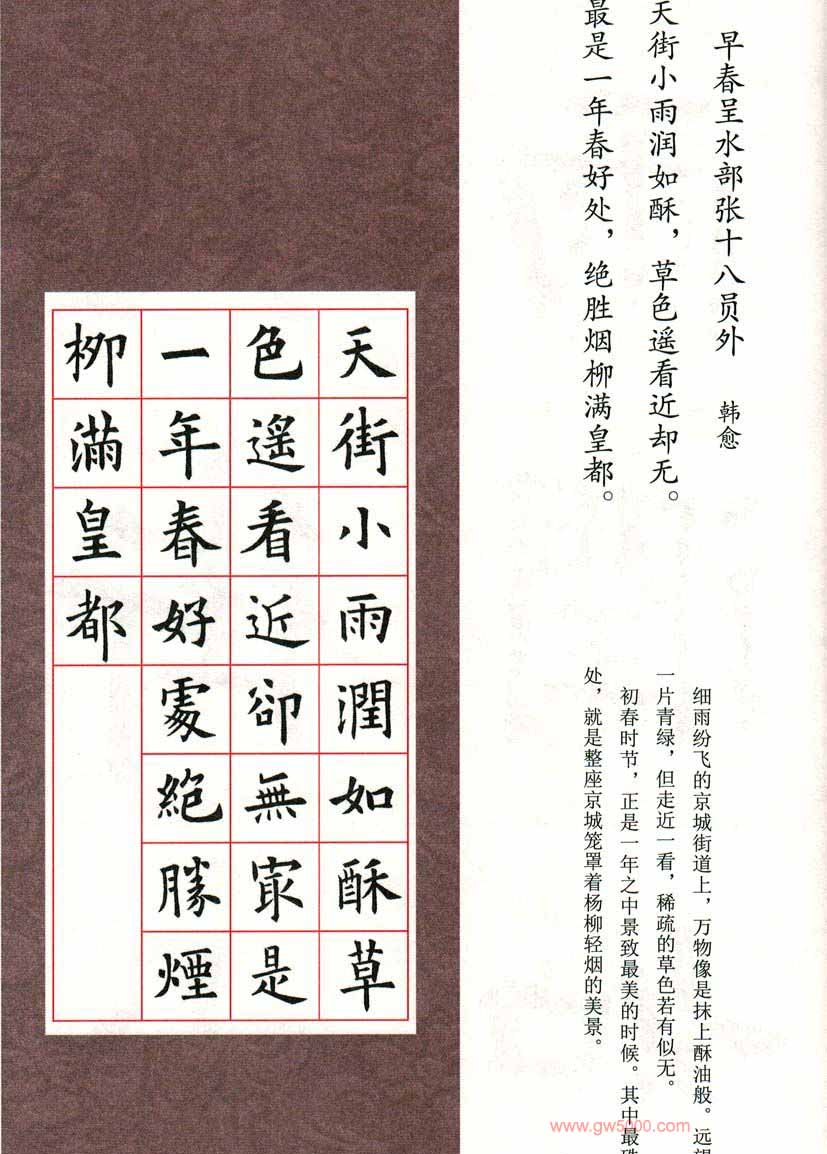 早春呈水部张十八员外 韩愈
天街小雨润如酥，草色遥看近却无。
最是一年春好处，绝胜烟柳满皇都。
细雨纷飞的京城街道上，万物像是抹上酥油般。远望
一片青绿，但走近一看，稀疏的草色若有似无。
初春时节，正是一年之中景致最美的时候。其中最
处，就是整座京城笼罩着杨柳轻烟的美景。
天街小雨潤如酥草
色遥看近卻無冣是
一年春好處絶勝煙
柳滿皇都
www.gw5000.com